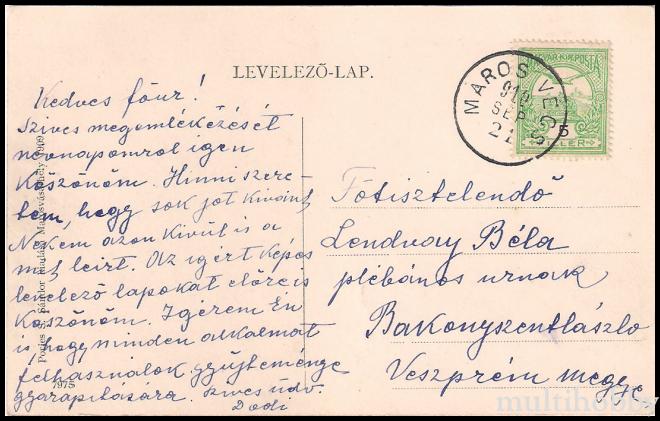 LEVELEZŐ-LAP.
MAROS VÉCS
910
SEP
21
MAGYAR KIR. POSTA
5
FILLÉR
Kedves főur!
Szives megemlékezését
névnapomrol igen
köszönöm. Hinni szere-
tem, hogy sok jót kivánt
Nekem azon kivül is a
mit leirt. Az igért képes
levelező lapokat előre is
köszönöm. Igérem Én
is hogy minden alkalmat
felhasználok gyüjteménye
gyarapitására. szives üdv.
Dodi
Főtisztelendő
Lendvay Béla
plébános urnak
Bakonyszentlászló
Veszprém megye
Sándor kiadása Marosvásárhely 1909
7975
multihobby